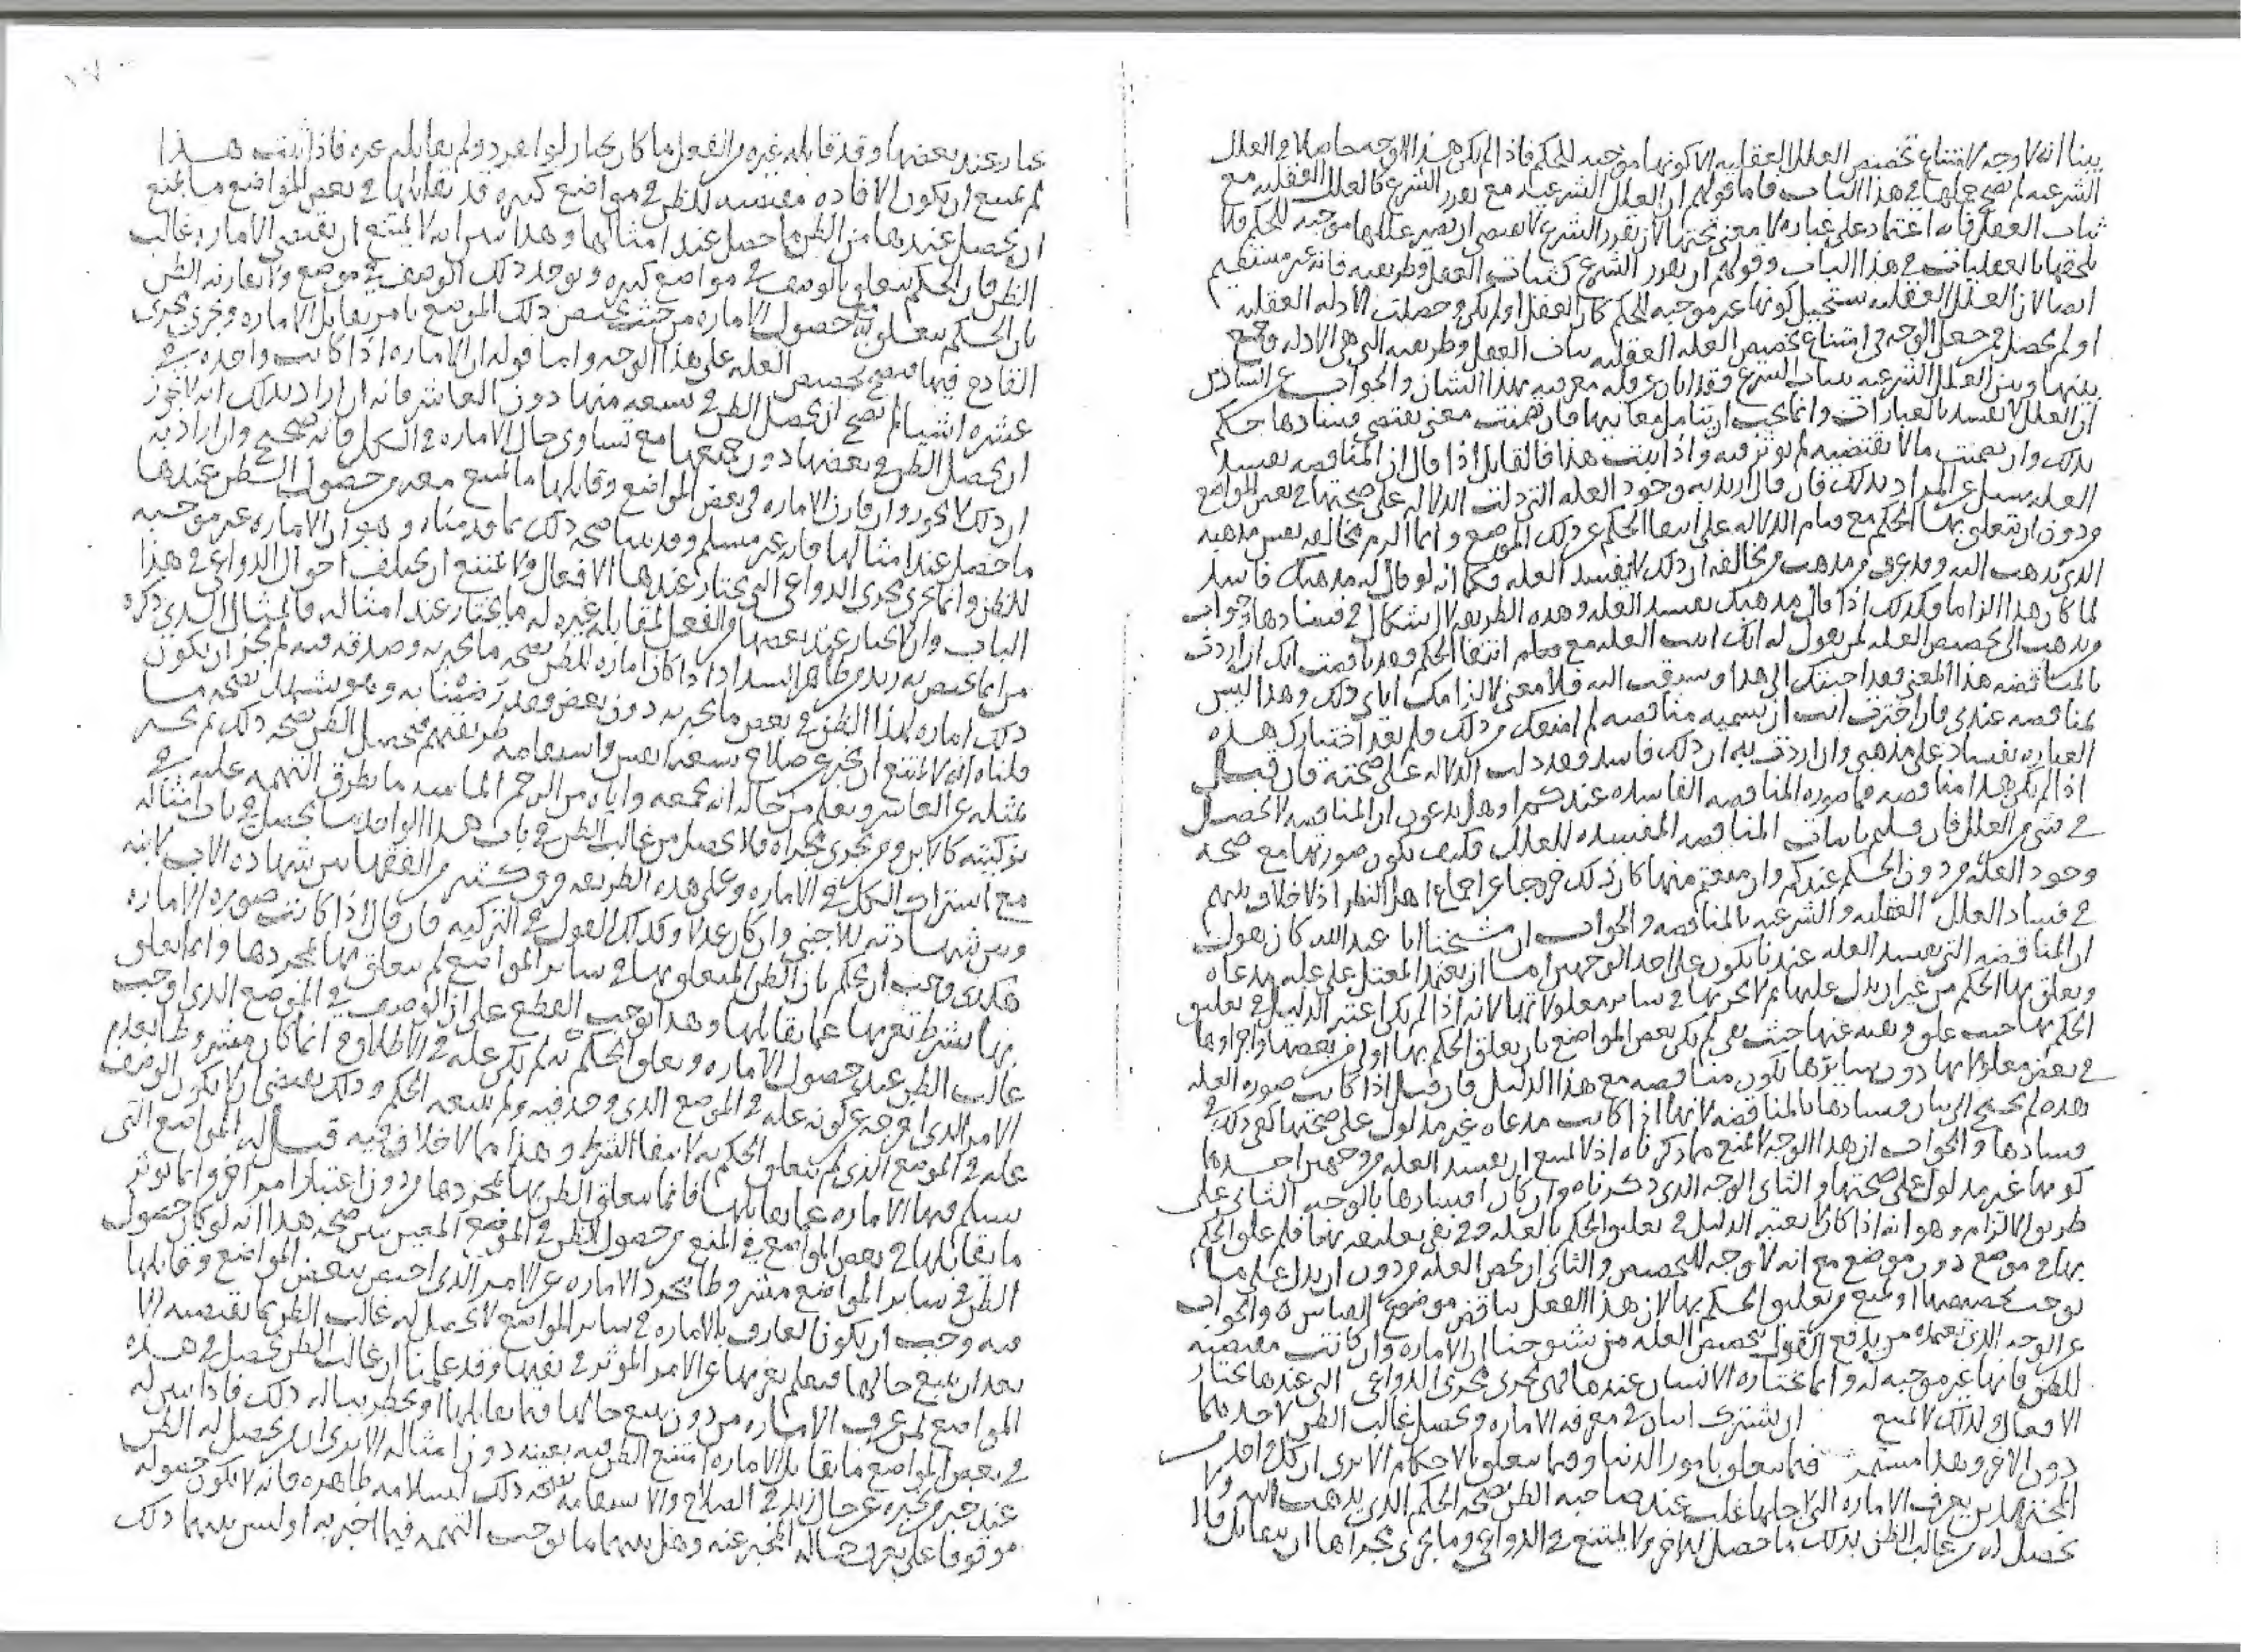 بينا انه لا وجه لامتناع تخصيص العلل العقليه الا كونها موجبه للحكم فاذا لم يكن هذا الوجه حاصلا في العلل
الشرعيه لم يصح حملها في هذا الباب فاما قولهم ان العلل الشرعيه مع تعبد الشرع كالعلل العقليه مع
العقل فانه اعتماد على عباره لا معنى تحتها لان تقرر الشرع لا يقتضي ان تصير عللها موجبه للحكم
بالعقليات في هذا الباب وقولهم ان تقرر الشرع كثبات العقل وطريقه فانه غير مستقيم
ايضا لان العلل العقليه يستحيل كونها غير موجبه للحكم كان العقل او لم يكن وحصلت الادله العقليه
او لم تحصل فمن جعل الوجه في امتناع تخصيص العله العقليه ثبات العقل وطريقه التي هي الادله وجمع
بينها وبين العلل الشرعيه بثبات الشرع فقد ابان عن قله معرفته بهذا الشان والجواب عن السادس
ان العلل لا تفسد بالعبارات وانما يجب ان يتامل معانيها فان تضمنت معنى يقتضي فسادها حكم
بذلك وان تضمنت ما لا يقتضيه لم يوثر فيه واذا ثبت هذا فالقايل اذا قال ان المناقضه تفسد
العله يسال عن المراد بذلك فان قال اريد به وجود العله التي دلت الدلاله على صحتها في بعض المواضع
من دون ان يتعلق بها الحكم مع قيام الدلاله على انتفا الحكم عن ذلك الموضع وانما الزم مخالفه نفس مذهبه
الذي يذهب اليه وقد عرف من مذهب من يخالفه ان ذلك لا يفسد العله فكما انه لو قال له مذهبك فاسد
لما كان هذا الزاما فكذلك اذا قال مذهبك يفسد العله وهذه الطريقه لا اشكال في فسادها وجواب
من يذهب الى تخصيص العله لمن يقول له انك اثبت العله مع انتفا الحكم وقد ناقضت انك ان اردت
بالمناقضه هذا المعنى فقد اجبتك الى هذا وسبقت اليه فلا معنى لالزامك اياي ذلك وهذا ليس
بمناقضه عندي فان اخترت انت ان تسميه مناقضه لم امنعك من ذلك ولم يقد اختيارك هذه
العباره بفساد على مذهبي وان اردت به ان ذلك فاسد فقد دلت الدلاله على صحته فان قيل
اذا لم يكن هذا مناقضه فما صوره المناقضه الفاسده عندكم او هل تدعون ان المناقضه لا تحصل
في شي من العلل فان قلتم باثبات المناقضه المفسده للعلل فكيف تكون صورتها مع صحه
وجود العله من دون الحكم عندكم وان منعتم منها كان ذلك خروجا عن اجماع اهل النظر اذ لا خلاف بينهم
في فساد العلل العقليه والشرعيه بالمناقضه والجواب ان شيخنا ابا عبد الله كان يقول
ان المناقضه التي تفسد العله عندنا تكون على احد الوجهين اما ان يعتمد المعتل على عله مدعاه
ويعلق بها الحكم من غير ان يدل عليها ثم لا يجريها في ساير معلولاتها لانه اذا لم يكن اعتبر الدليل في تعليق
الحكم بها حيث علق ونفيه عنها حيث نفى لم يكن بعض المواضع بان يعلق الحكم بها اولى من بعضها واجراوها
في بعض معلولاتها دون سايرها يكون مناقضه مع هذا الدليل فان قيل اذا كانت صوره العله
هذه لم يحتج الى بيان فسادها بالمناقضه لانها اذا كانت مدعاه غير مدلول على صحتها كفى ذلك في
فسادها والجواب ان هذا الوجه لا يمنع مما ذكرناه اذ لا يمتنع ان تفسد العله من وجهين احدهما
كونها غير مدلول على صحتها والثاني الوجه الذي ذكرناه وان كان افسادها بالوجه الثاني على
طريق الالزام وهو انه اذا كان لا يعتبر الدليل في تعليق الحكم بالعله وفي نفي تعليقه بها فلم علق الحكم
بها في موضع دون موضع مع انه لا وجه للتخصيص والثاني ان يخص العله من دون ان يدل على ما
يوجب تخصيصها او يمنع من تعليق الحكم بها لان هذا الفعل يناقض موضوع القياس والجواب
عن الوجه الذي يعتمده من يدفع القول بتخصيص العله من شيوخنا ان الاماره وان كانت مقتضيه
للظن فانها غير موجبه له وانما يختاره الانسان عندها فهي تجري مجرى الدواعي التي عندها يختار
الافعال ولذلك لا يمتنع ان يشترك اثنان في معرفه الاماره ويحصل غالب الظن لاحدهما
دون الاخر وهذا مستمر فيما يتعلق بامور الدنيا وفيما يتعلق بالاحكام الا ترى ان كل احد من
المجتهدين يعرف الاماره التي لاجلها غلب عند صاحبه الظن بصحه الحكم الذي يذهب اليه ولا
يحصل له من غالب الظن بذلك ما حصل للاخر ولا يمتنع في الدواعي وما يجري مجراها ان يتقابل فلا
يختار عند بعضها وقد قابله غيره من الفعل ما كان يختار لو انفرد ولم يقابله غيره فاذا ثبت هذا
لم يمتنع ان يكون الاماره مقتضيه للظن في مواضع كثيره قد يقابلها في بعض المواضع ما يمنع
ان يحصل عندها من الظن ما حصل عند امثالها وهذا يبين انه لا يمتنع ان تقتضي الاماره غالب
الظن فان الحكم يتعلق بالوصف في مواضع كثيره ويوجد ذلك الوصف في موضع ولا يقارنه الظن
بان الحكم يتعلق به مع حصول الاماره من حيث يختص ذلك الموضع بامر يقابل الاماره ويجري مجرى
القادح فيها فيصح تخصيص العله على هذا الوجه واما قوله ان الاماره اذا كانت واحده في
عشره اشيا لم يصح ان يحصل الظن في تسعه منها دون العاشر فانه ان اراد بذلك انه لا يجوز
ان يحصل الظن في بعضها دون جميعها مع تساوي حال الاماره في الكل فانه صحيح وان اراد به
ان ذلك لا يجوز وان قارن الاماره في بعض المواضع وقابلها ما يمنع معه من حصول الظن عندها
ما حصل عند امثالها فانه غير مسلم وقد بينا صحه ذلك بما قدمناه وهو ان الاماره غير موجبه
للظن وانما تجري مجرى الدواعي التي يختار عندها الافعال ولا يمتنع ان يختلف احوال الدواعي في هذا
الباب وان لا يختار عند بعضها من الفعل لمقابله غيره له ما يختار عند امثاله فالمثال الذي ذكره
من انما يختص به زيد من ظاهر السداد اذا كان اماره للظن بصحه ما يخبر به وصدقه فيه لم يجز ان يكون
ذلك اماره لهذا الظن في بعض ما يخبر به دون بعض فقد رضينا به وهو يشهد بصحه ما
قلناه لانه لا يمتنع ان يخبر عن صلاح تسعه انفس واستقامه طريقتهم فيحصل الظن بصحه ذلك ثم يخبر
بمثله عن العاشر ويعلم من حاله انه يجمعه واياه من الرحم الماسه ما يطرق التهمه عليه في
تزكيته كالابن ومن يجري مجراه فلا يحصل من غالب الظن في باب هذا الواحد ما يحصل في باب امثاله
مع اشتراك الكل في الاماره وعلى هذه الطريقه فرق كثير من الفقها بين شهاده الاب لابنه
وبين شهادته للاجنبي وان كان عدلا وكذلك القول في التزكيه فان قال اذا كانت صوره الاماره
هكذى وجب ان يحكم بان الظن المتعلق بها في ساير المواضع لم يتعلق بها بمجردها وانما تعلق
بها بشرط تعريها عما يقابلها وهذا يوجب القطع على ان الوصف في الموضع الذي اوجب
غالب الظن عند حصول الاماره وتعلق الحكم به لم يكن عله في الاطلاق انما كان مشروطا بعدم
الامر الذي اخرجه عن كونه عله في الموضع الذي وجد فيه ولم يتبعه الحكم وذلك يقتضي ان لا يكون الوصف
عله في الموضع الذي لم يتعلق الحكم به لانتفا الشرط وهذا مما لا خلاف فيه قيل له المواضع التي
يسلم فيها الاماره عما يقابلها فانما يتعلق الظن بها بمجردها من دون اعتبار امر اخر وانما يوثر
ما يقابلها في بعض المواضع في المنع من حصول الظن في الموضع المعين يبين صحه هذا انه لو كان حصول
الظن في ساير المواضع مشروطا بتجرد الاماره عن الامر الذي اختص ببعض المواضع وقابلها
فيه وجب ان يكون العارف بالاماره في ساير المواضع لا يحصل له غالب الظن بما تقتضيه الا
بعد ان يتتبع حالها فيعلم تعريها عن الامر الموثر في نفيها وقد علمنا ان غالب الظن يحصل في هذه
المواضع لمن عرف الاماره من دون تتبع حالها فيما يقابلها او يخطر بباله ذلك فاذا تبين له
في بعض المواضع ما يقابل الاماره امتنع الظن فيه بعينه دون امثاله الا ترى ان من يحصل له الظن
عند خبر مخبره عن حال زيد في الصلاح والاستقامه بصحه ذلك لسلامه ظاهره فانه لا يكون حصوله
موقوفا على تعرف حاله المخبر عنه وهل بينهما ما يوجب التهمه فيما اخبر به او ليس بينهما ذلك